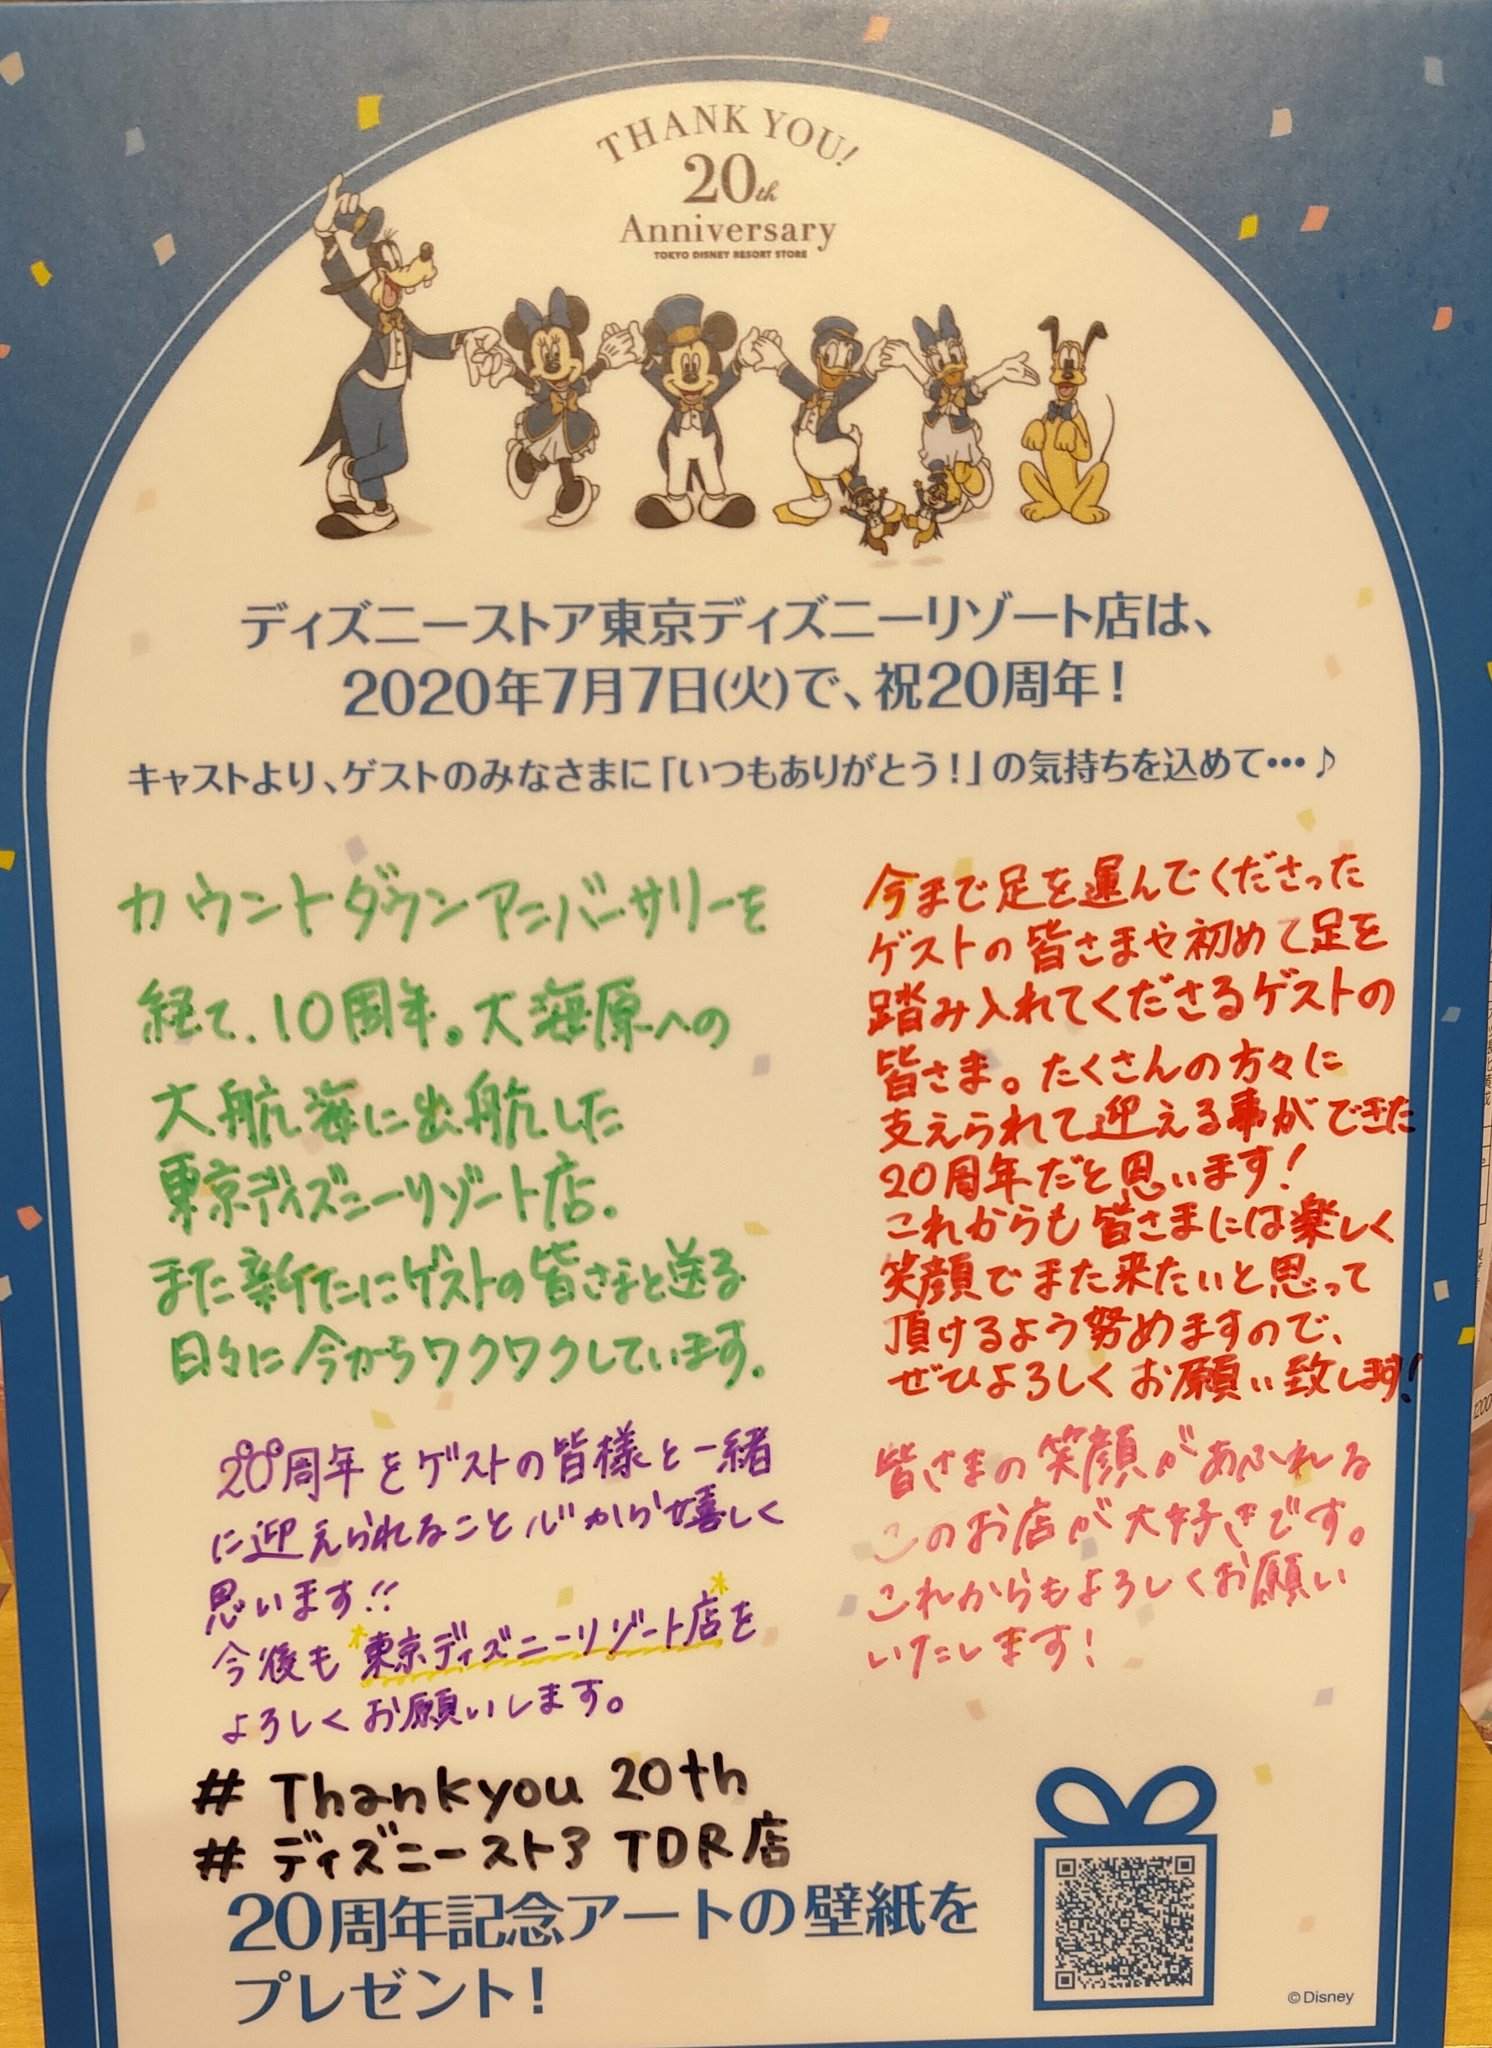 THANK YOU!
20th
Anniversary
TOKYO DISNEY RESORT STORE
ディズニーストア東京ディズニーリゾート店は、
2020年7月7日(火)で、祝20周年!
キャストより、ゲストのみなさまに「いつもありがとう!」の気持ちを込めて…♪
カウントダウンアニバーサリーを
経て、10周年。大海原への
大航海に出航した
東京ディズニーリゾート店。
また新たにゲストの皆さまと送る
日々に今からワクワクしています。
今まで足を運んでくださった
ゲストの皆さまや初めて足を
踏み入れてくださるゲストの
皆さま。たくさんの方々に
支えられて迎える事ができた
20周年だと思います!
これからも皆さまには楽しく
笑顔でまた来たいと思って
頂けるよう努めますので、
ぜひよろしくお願い致します!
20周年をゲストの皆様と一緒
に迎えられること心から嬉しく
思います!!
今後も*東京ディズニーリゾート店*を
よろしくお願いします。
皆さまの笑顔があふれる
このお店が大好きです。
これからもよろしくお願い
いたします!
# Thankyou 20th
# ディズニーストア TDR店
20周年記念アートの壁紙を
プレゼント!
©Disney